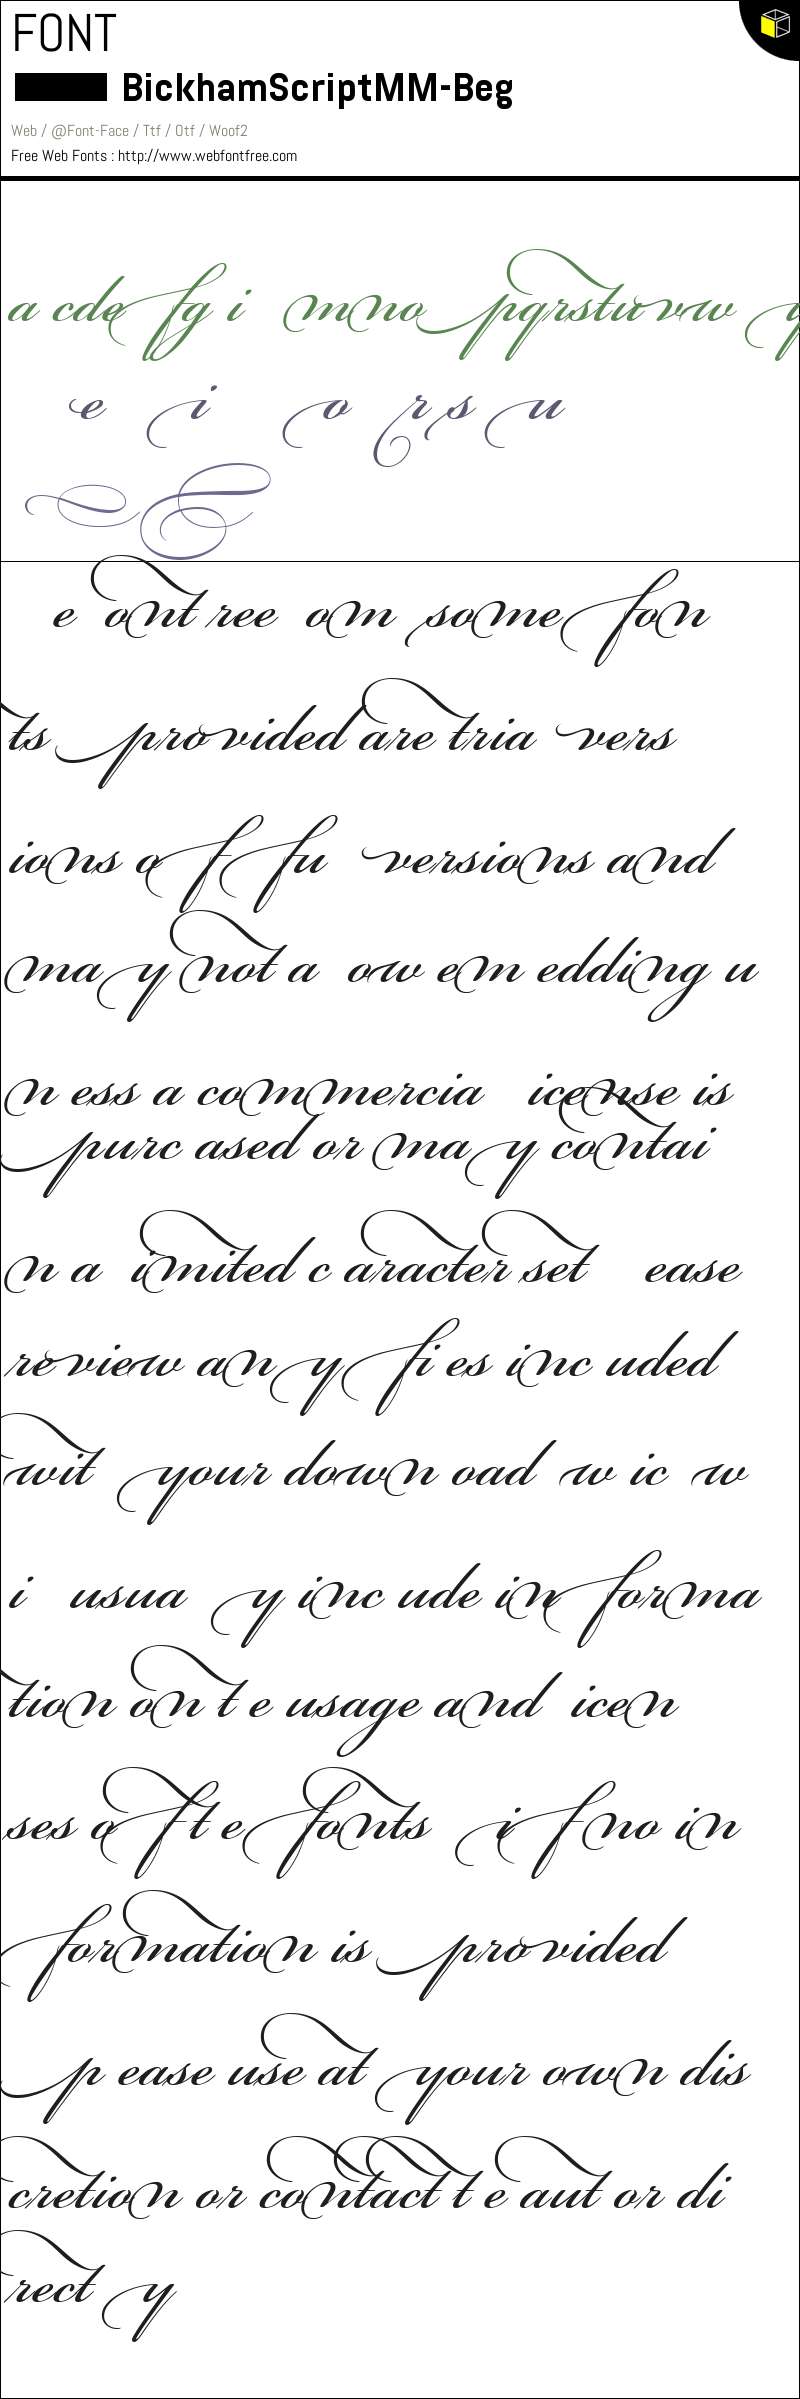 FONT
BickhamScriptMM-Beg
Web / @Font-Face / Ttf / Otf / Woof2
Free Web Fonts : http://www.webfontfree.com
a cde fg i mno pqrstuvw y
e i o r s u
e ont ree om some fon
ts provided are tria vers
ions of fu versions and
may not a ow em edding u
n ess a commercia icense is
purc ased or may contai
n a imited c aracter set ease
review any fi es inc uded
wit your down oad w ic w
i usua y inc ude in forma
tion on t e usage and icen
ses of t e fonts if no in
formation is provided
p ease use at your own dis
cretion or contact t e aut or di
rect y